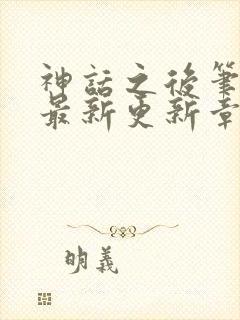 神話之後筆
最新更新章
明義